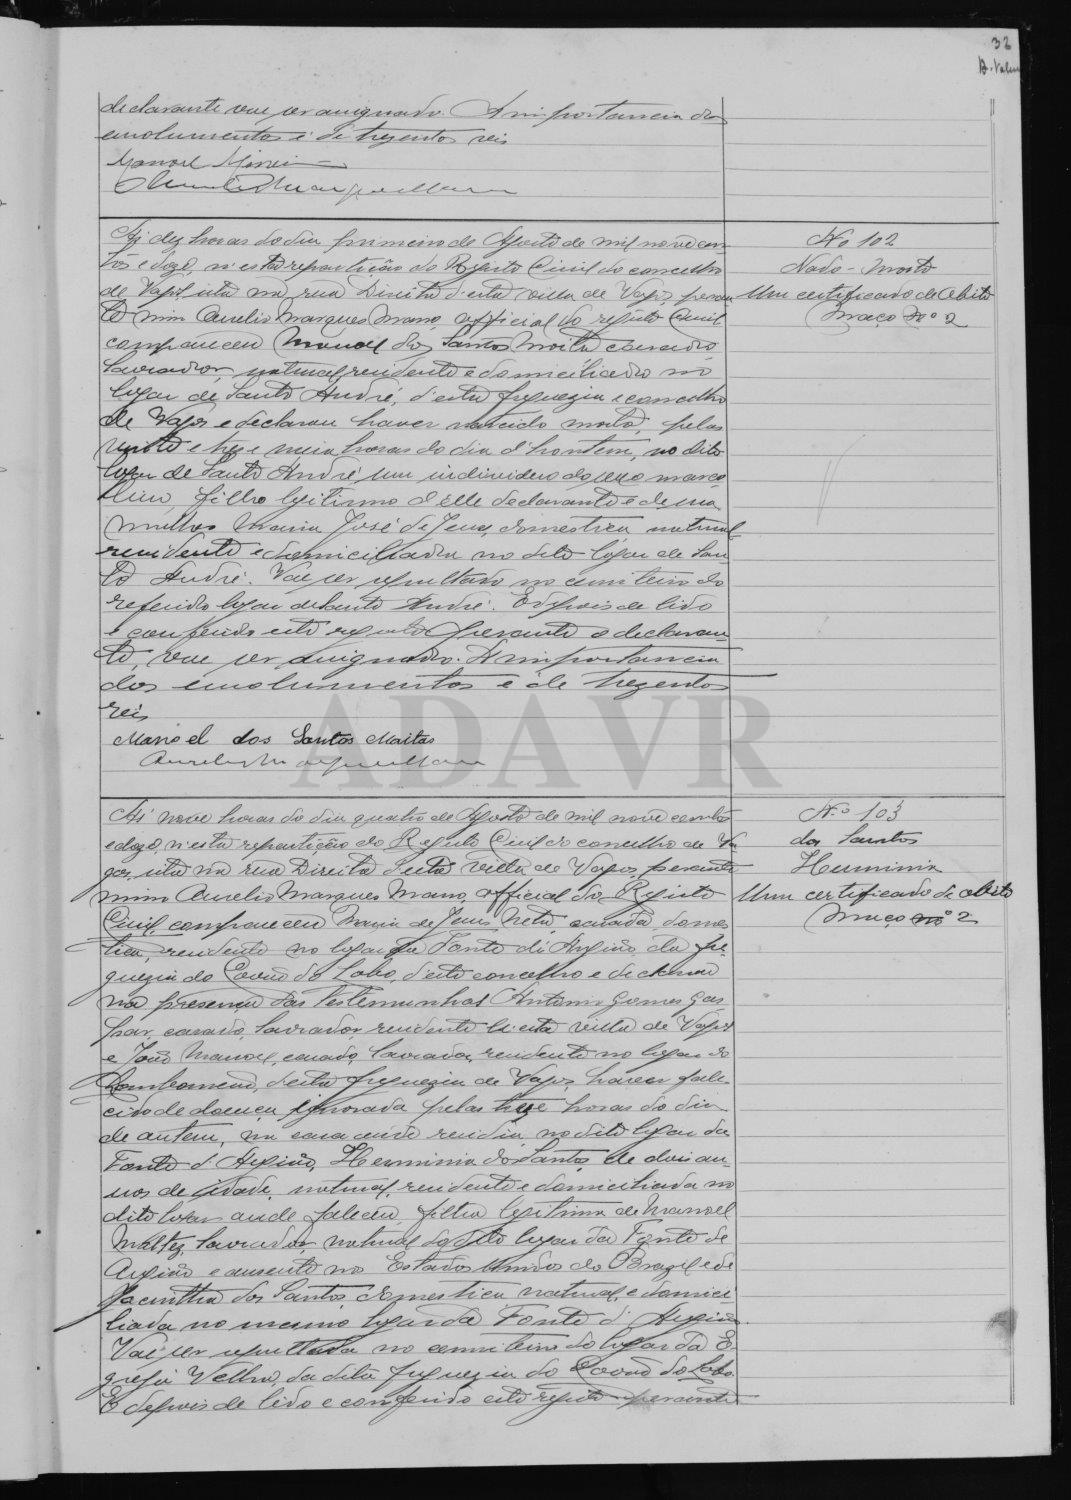 32
declarante vae ser assignado. A importancia dos
emolumentos é de trezentos reis
Manoel
Aurelio Marques Mano
Nº 102
Nado-morto
Um certificado de obito
Maço nº 2
Ás dez horas do dia primeiro de Agosto de mil novecen
tos e doze, n'esta repartição do Registo Civil do concelho
de Vagos, sita na rua Direita d'esta villa de Vagos, peran
te mim Aurelio Marques Mano, official do registo Civil
compareceu Manoel dos Santos Moita, casado,
lavrador, natural, residente e domiciliado no
logar de Santo André, d'esta freguezia e concelho
de Vagos e declarou haver nascido morto, pelas
vinte e tres e meia horas do dia d'hontem, no dito
logar de Santo André um individuo do sexo mascu
lino, filho legitimo d'elle declarante e de sua
mulher Maria José de Jesus, domestica, natural
residente e domiciliada no dito logar de San
to André. Vae ser sepultado no cemiterio do
referido logar de Santo André. E depois de lido
e conferido este registo perante o declaran
te, vae ser assignado. A importancia
dos emolumentos é de trezentos
reis
Manoel dos Santos Maitas
Aurelio Marques Mano
ADAVR
Nº 103
dos Santos
Herminia
Um certificado de obito
Maço nº 2
Ás nove horas do dia quatro de Agosto de mil nove centos
e doze, n'esta repartição do Registo Civil do concelho de Va
gos, sita na rua Direita d'esta villa de Vagos, perante
mim Aurelio Marques Mano, official do Registo
Civil, compareceu Maria de Jesus Neta, casada, domes
tica, residente no logar da Fonte d'Angião, da fre
guezia do Covão do Lobo, d'este concelho e declarou
na presença das testemunhas Antonio Gomes Gas
par, casado, lavrador, residente n'esta villa de Vagos
e João Manoel, casado, lavrador, residente no logar do
Lombomeão, d'esta freguezia de Vagos, haver fale
cido de doença ignorada pelas treze horas do dia
de antem, na casa onde residia, no dito logar da
Fonte d'Angião, Herminia dos Santos, de dois an
nos de idade, natural, residente e domiciliada no
dito logar onde faleceu, filha legitima de Manoel
Maltez, lavrador, natural do dito logar da Fonte de
Angião e ausente nos Estados Unidos do Brazil e de
Jacintha dos Santos, domestica, natural, e domici
liada no mesmo logar da Fonte d'Angião.
Vae ser sepultada no cemiterio do logar da E
greja Velha, da dita freguezia do Covão do Lobo.
E depois de lido e conferido este registo perante